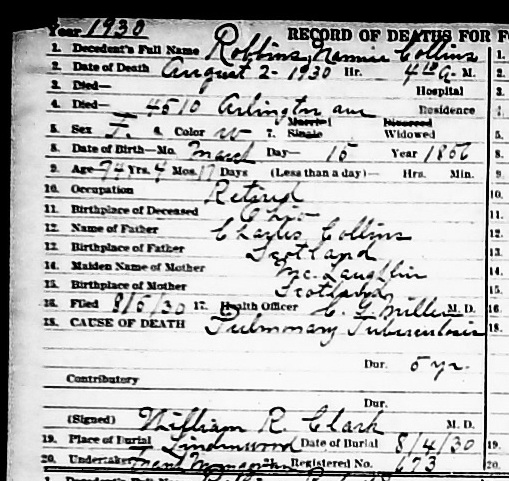 Year 1930 RECORD OF DEATHS FOR F
1. Decedent's Full Name Robbins, Nannie Collins 1.
2. Date of Death August 2-1930 Hr. 4 10 A. M. 2.
3. Died— Hospital 3.
4. Died— 4510 Arlington ave Residence
5. Sex F. 6. Color W 7. Married Single Divorced Widowed 5.
8. Date of Birth—Mo. March Day— 15 Year 1856 8.
9. Age 74 Yrs. 4 Mos. 17 Days (Less than a day)— Hrs. Min. 9.
10. Occupation Retired 10.
11. Birthplace of Deceased Ohio 11.
12. Name of Father Charles Collins 12.
13. Birthplace of Father Scotland 13.
14. Maiden Name of Mother McLaughlin 14.
15. Birthplace of Mother Scotland 15.
16. Filed 8/5/30 17. Health Officer C. G. Miller M. D. 16.
18. CAUSE OF DEATH Pulmonary Tuberculosis 18.
Dur. 5 yr.
Contributory
Dur.
(Signed) William R. Clark M. D.
19. Place of Burial Lindenwood Date of Burial 8/4/30 19.
20. Undertaker Frank Registered No. 673 20.